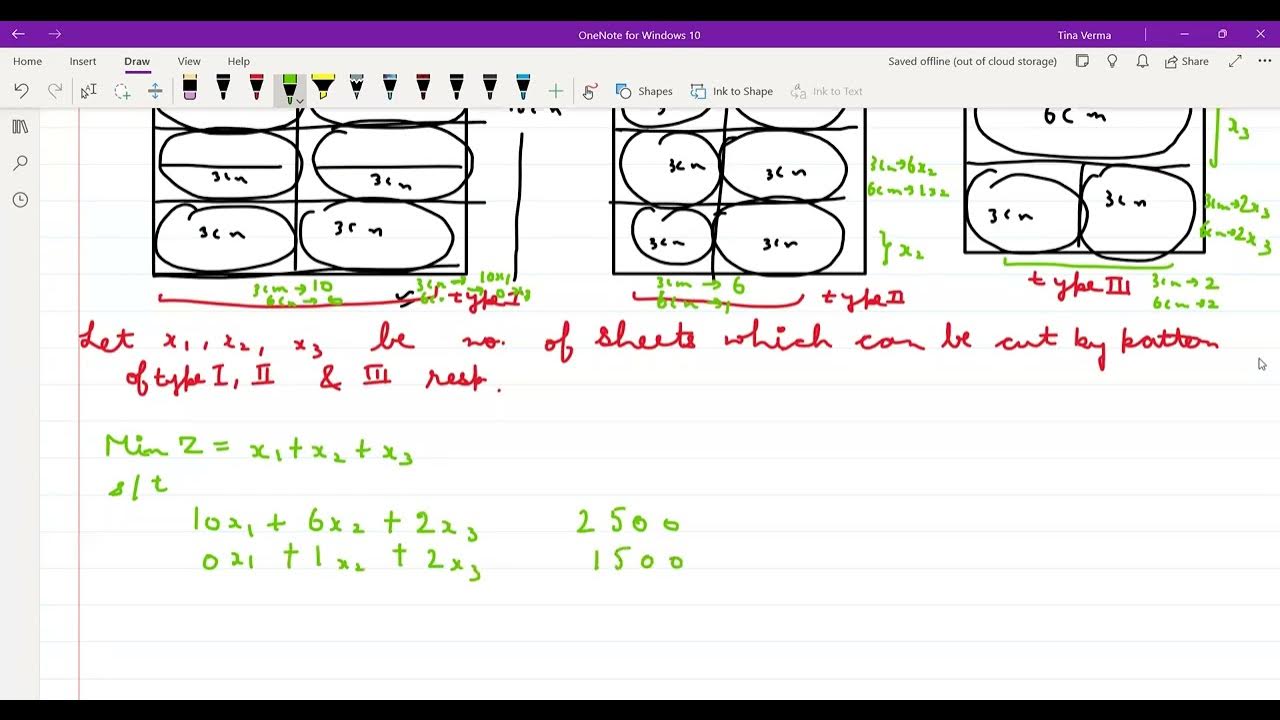 OneNote for Windows 10
Tina Verma
Home Insert Draw View Help
Saved offline (out of cloud storage)
Share
Shapes
Ink to Shape
Ink to Text
6cm
x3
3cm
3cm
3cm
3cm
3cm→6x2
6cm→1x2
3cm
3cm
3cm→2x3
6cm→2x3
3cm
3cm
3cm
3cm
x2
3cm → 10
6cm → 0
10x1
type I
3cm → 6
6cm → 1
type II
type III
3cm → 2
6cm → 2
Let x1, x2, x3 be no. of sheets which can be cut by pattern
of type I, II & III resp.
Min Z = x1 + x2 + x3
s/t
10x1 + 6x2 + 2x3 2500
0x1 + 1x2 + 2x3 1500